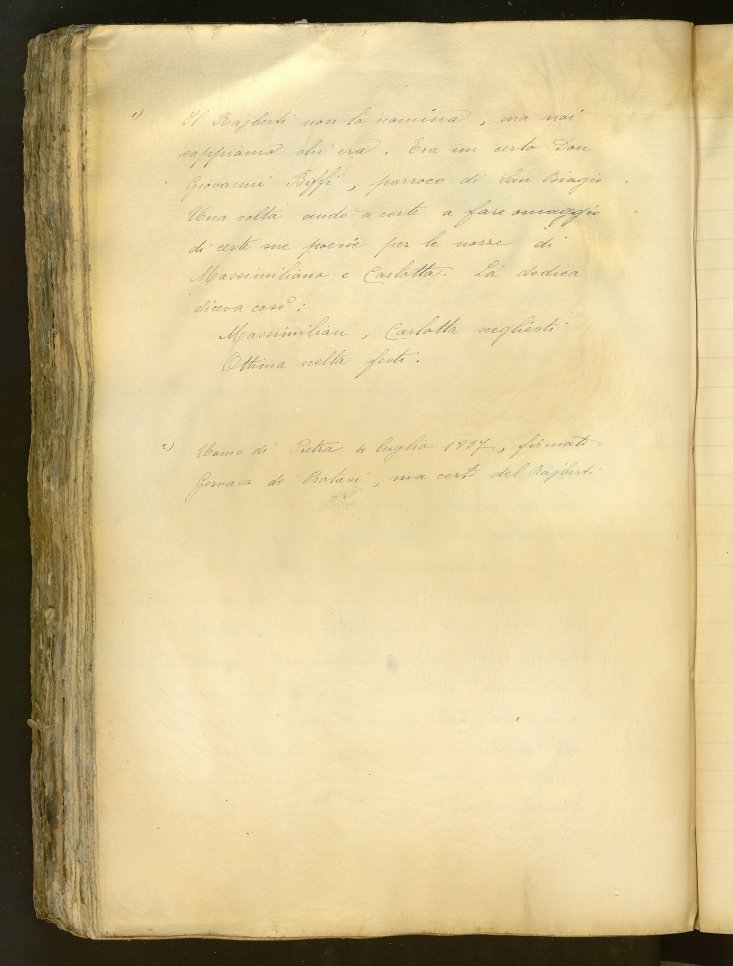 1) Il Rajberti non lo nomina, ma noi
sappiamo chi era. Era un certo Don
Giovanni Biffi, parroco di San Biagio.
Una volta andò a corte a fare omaggio
di certe sue poesie per le nozze di
Massimiliano e Carlotta. La dedica
diceva così:
Massimilian, Carlotta scegliesti
Ottima scelta festi.
2) Uomo di Pietra 4 luglio 1857, firmato
Gervaso de Protasi, ma certo del Rajberti